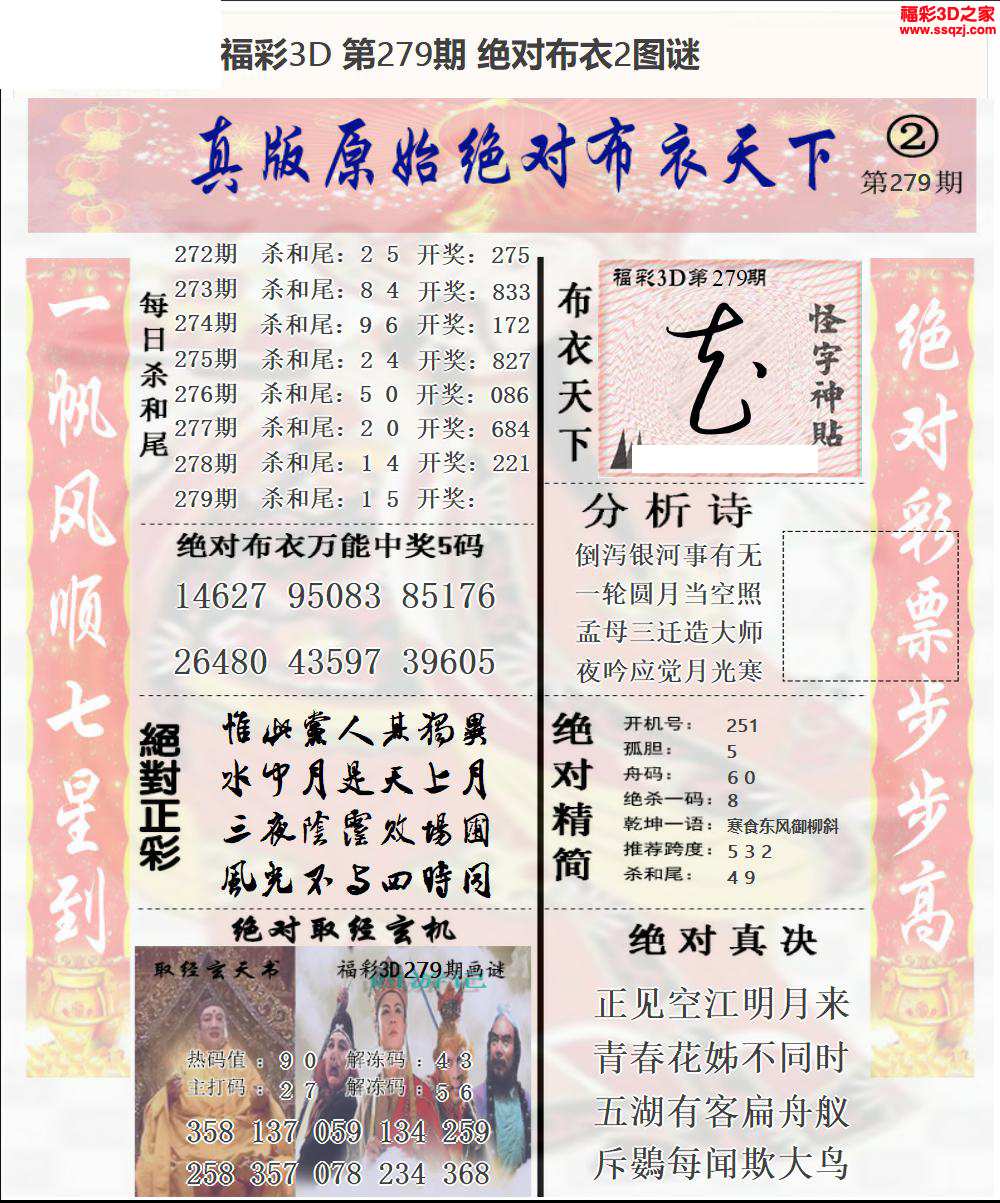 福彩3D之家
www.ssqzj.com
福彩3D 第279期 绝对布衣2图谜
真版原始绝对布衣天下
②
第279期
一帆风顺七星到
每日杀和尾
272期 杀和尾：2 5 开奖：275
273期 杀和尾：8 4 开奖：833
274期 杀和尾：9 6 开奖：172
275期 杀和尾：2 4 开奖：827
276期 杀和尾：5 0 开奖：086
277期 杀和尾：2 0 开奖：684
278期 杀和尾：1 4 开奖：221
279期 杀和尾：1 5 开奖：
绝对布衣万能中奖5码
14627 95083 85176
26480 43597 39605
絕對正彩
惟此黨人其獨異
水中月是天上月
三夜陰靈败場圃
風光不与四時同
绝对取经玄机
取经玄天书
福彩3D279期画谜
热码值：9 0 解冻码：4 3
主打码：2 7 解冻码：5 6
358 137 059 134 259
258 357 078 234 368
布衣天下
福彩3D第279期
怪字神贴
分析诗
倒泻银河事有无
一轮圆月当空照
孟母三迁造大师
夜吟应觉月光寒
绝对精简
开机号： 251
孤胆： 5
舟码： 6 0
绝杀一码：8
乾坤一语：寒食东风御柳斜
推荐跨度：5 3 2
杀和尾： 4 9
绝对真决
正见空江明月来
青春花姊不同时
五湖有客扁舟舣
斥鷃每闻欺大鸟
绝对彩票步步高